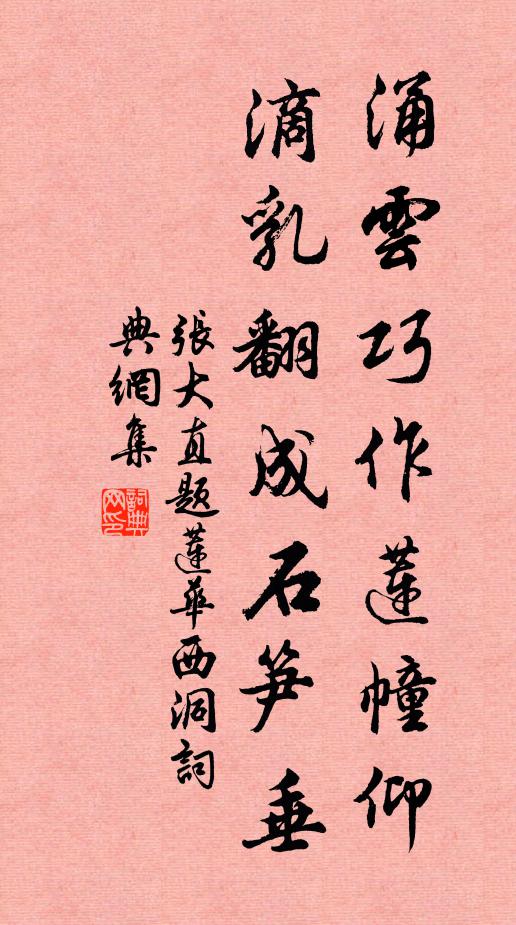 涌雲巧作蓮幢仰
滴乳翻成石笋垂
張大直題蓮華西洞詞
典網集
詞典網印